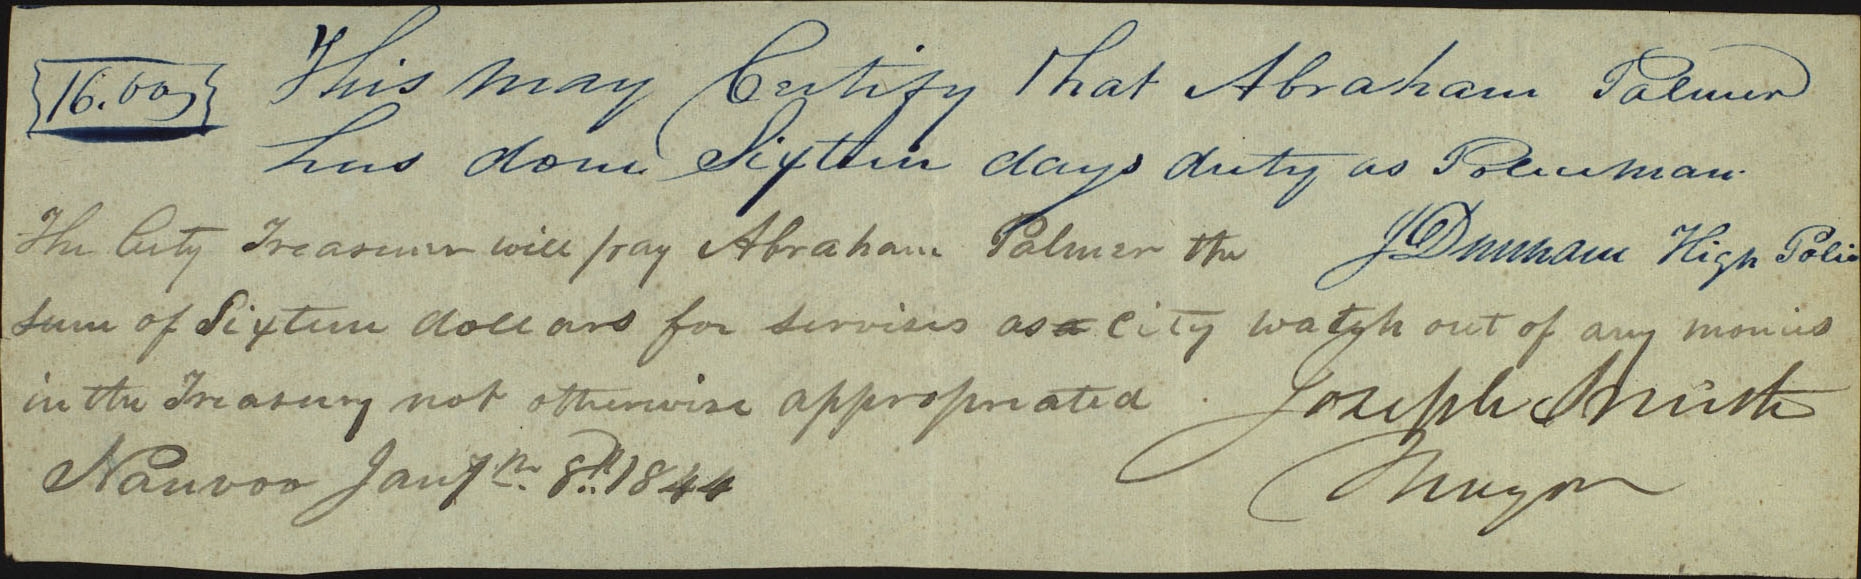 16.00
This may Certify that Abraham Palmer
has done Sixteen days duty as Policeman.
J Dunham High Polic
The City Treasurer will pay Abraham Palmer the
sum of Sixteen dollars for servises as a City watch out of any monies
in the Treasury not otherwise appropriated. Joseph Smith
Nauvoo Jany 8th 1844 Mayor